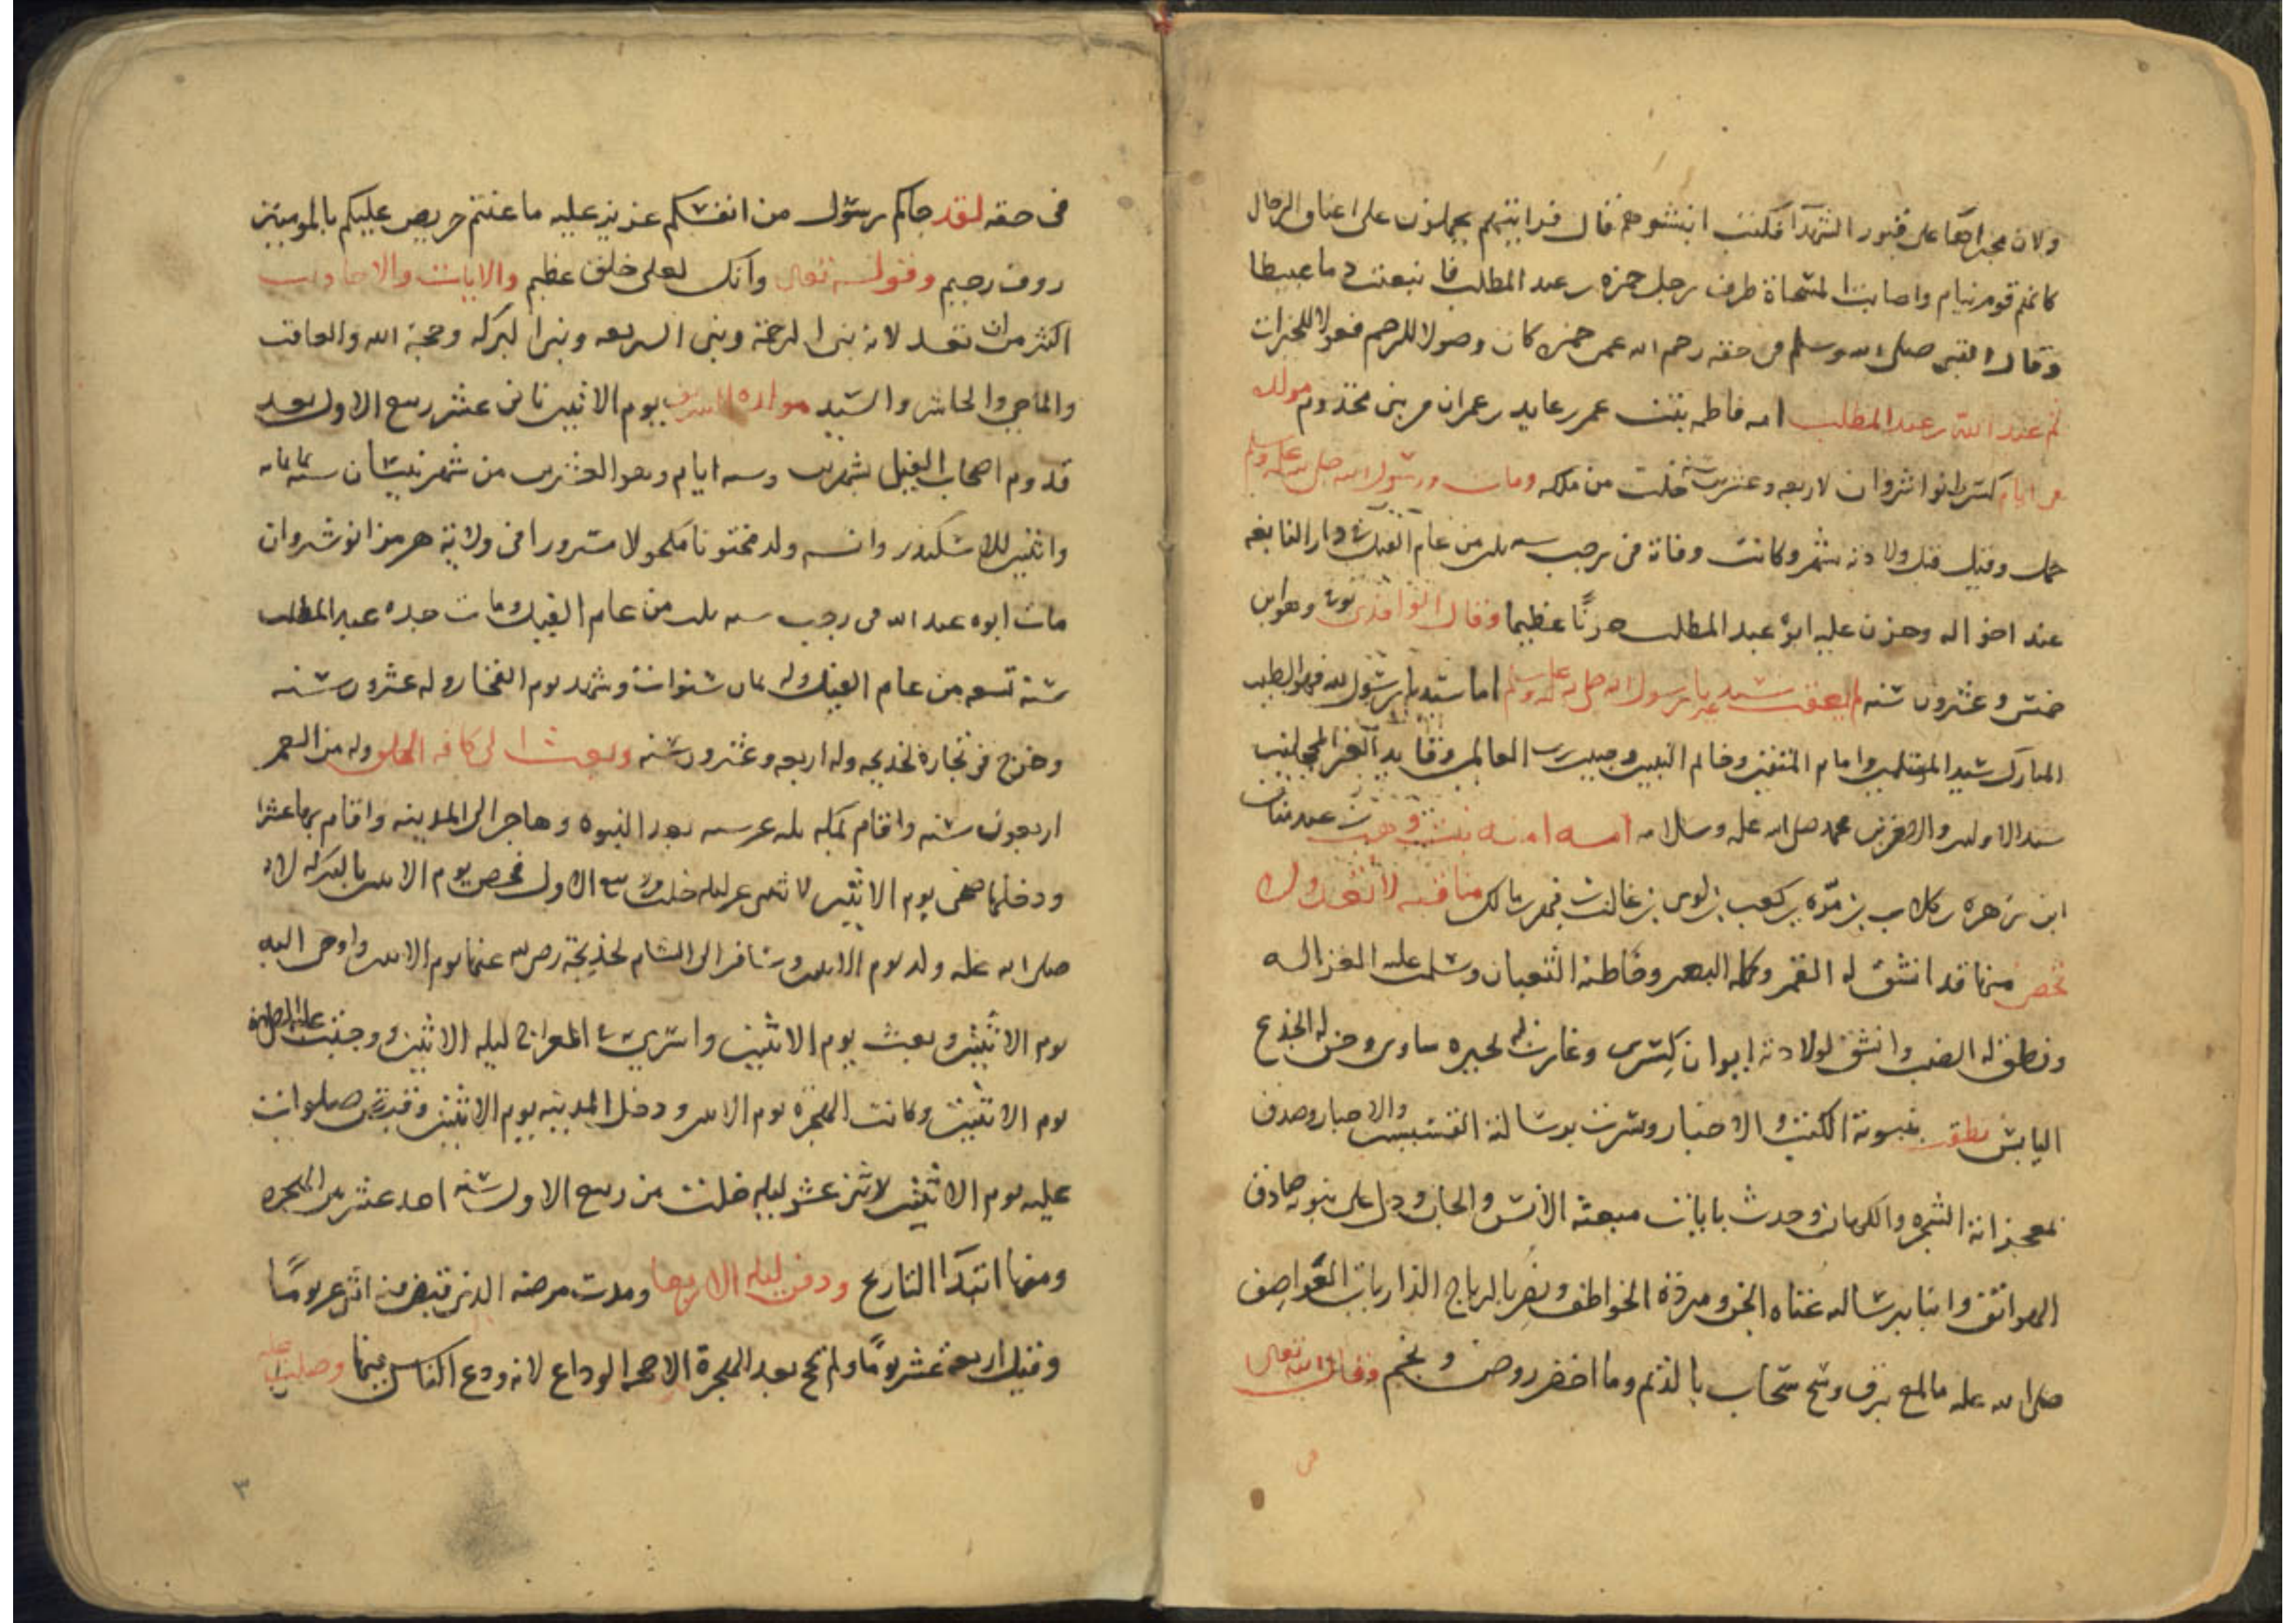 ولان مجراها على قبور الشهدآ فكنت انبشوهم قال فرايتهم يحملون على اعناق الرجال
كانهم قوم نيام واصابت المسحاة طرف رجل حمزه بن عبد المطلب فانبعثت دما عبيطا
وقال النبى صلى الله وسلم فى حقه رحم الله عمى حمزه كان وصولا للرحم فعولا للخيرات
ثم عبد الله بن عبد المطلب امه فاطمه بنت عمر بن عايد بن عمران من بنى مخذوم مولده
فى ايام كسرى انوا شروان لاربعه وعشرين سنه خلت من ملكه ومات ورسول الله صلى الله عليه وسلم
حمل وقيل قبل ولادته بشهر وكانت وفاة فى رجب سنه من عام الفيل فى دار النابغه
عند اخواله وحزن عليه ابوه عبد المطلب حزنًا عظيما وقال الواقدى توفى وهو ابن
خمس وعشرون سنه لم يعقب سيد غير رسول الله صلى الله عليه وسلم اما سيدنا رسول الله فهو الطيب
المبارك سيد المرسلين وامام المتقين وخاتم النبيين وحبيب رب العالمين وقايد الغر المحجلين
سيد الاولين والاخرين محمد صلى الله عليه وسلم امه امنه بنت وهب بن عبد مناف
ابن زهره بن كلاب بن مرّه بن كعب بن لوى بن غالب بن فهر بن مالك مناقبه لا تعد ولا
تحصى منها قد انشق له القمر وكلمه البعير وخاطبه الثعبان وسلمت عليه الغزاله
ونطق له الضب وانشق لولادته ايوان كسرى وغارت له بحيره ساوى وحن له الجذع
اليابس نطقت بنبوته الكتب والاخبار وبشرت برسالته القسيسين والاحبار وصدق
لمعجزاته الشجره والكهان وحدث بايات مبعثه الانس والجان ودل على نبوته صادق
الهواتف وانبا برسالته عتاه الجن ومردة الخواطف ونصر بالرياح الذاريات العواصف
صلى الله عليه ما لمع برق وسح سحاب بالديم وما اخضر روض ونجم وقال الله تعالى
فى
فى حقه لقد جاكم رسول من انفسكم عزيز عليه ما عنتم حريص عليكم بالمومنين
روف رحيم وقوله تعالى وانك لعلى خلق عظيم والايات والاحاديث
اكثر من ان تعد لانه نبى الرحمة ونبى الشريعه ونبى البركه ومحبة الله والعاقب
والماحى والحاشر والسيد مولده الشريف يوم الاثنين ثانى عشر ربيع الاول بعد
قدوم اصحاب الفيل بشهرين وسته ايام وهو العشرين من شهر نيسان سنه ثمانمايه
واثنين للاسكندر وانه ولد مختونا مكحولا مسرورا فى ولاية هرمز انوشروان
مات ابوه عبد الله فى رجب سنه من عام الفيل ومات جده عبد المطلب
سنة تسعه من عام الفيل وله ثمان سنوات وشهد يوم الفخار وله عشرون سنه
وخرج فى تجارة لخديجه وله اربعه وعشرون سنه وبعث الى كافه الخلق وله من العمر
اربعون سنه واقام بمكه ثلثه عشر سنه بعد النبوه وهاجر الى المدينه واقام بها عشرا
ودخلها ضحى يوم الاثنين لاثنى عشر ليله خلت من ربيع الاول فخص يوم الاثنين بالبركه لانه
صلى الله عليه ولد يوم الاثنين وسافر الى الشام لخديجة رضى الله عنها يوم الاثنين واوحى اليه
يوم الاثنين وبعث يوم الاثنين واسرى به المعراج ليله الاثنين ووجبت عليه الصلوه
يوم الاثنين وكانت الهجره يوم الاثنين ودخل المدينه يوم الاثنين وقبض صلوات
عليه يوم الاثنين لاثنى عشر ليله خلت من ربيع الاول سنه احد عشر من الهجره
ومنها ابتدا التاريخ ودفن ليله الاربعا ومدت مرضه الذى قبض منه اثنى عشر يومًا
وقيل اربعة عشر يومًا ولم يحج بعد الهجرة الا حجة الوداع لانه ودع الناس فيها وصلى عليه
٣